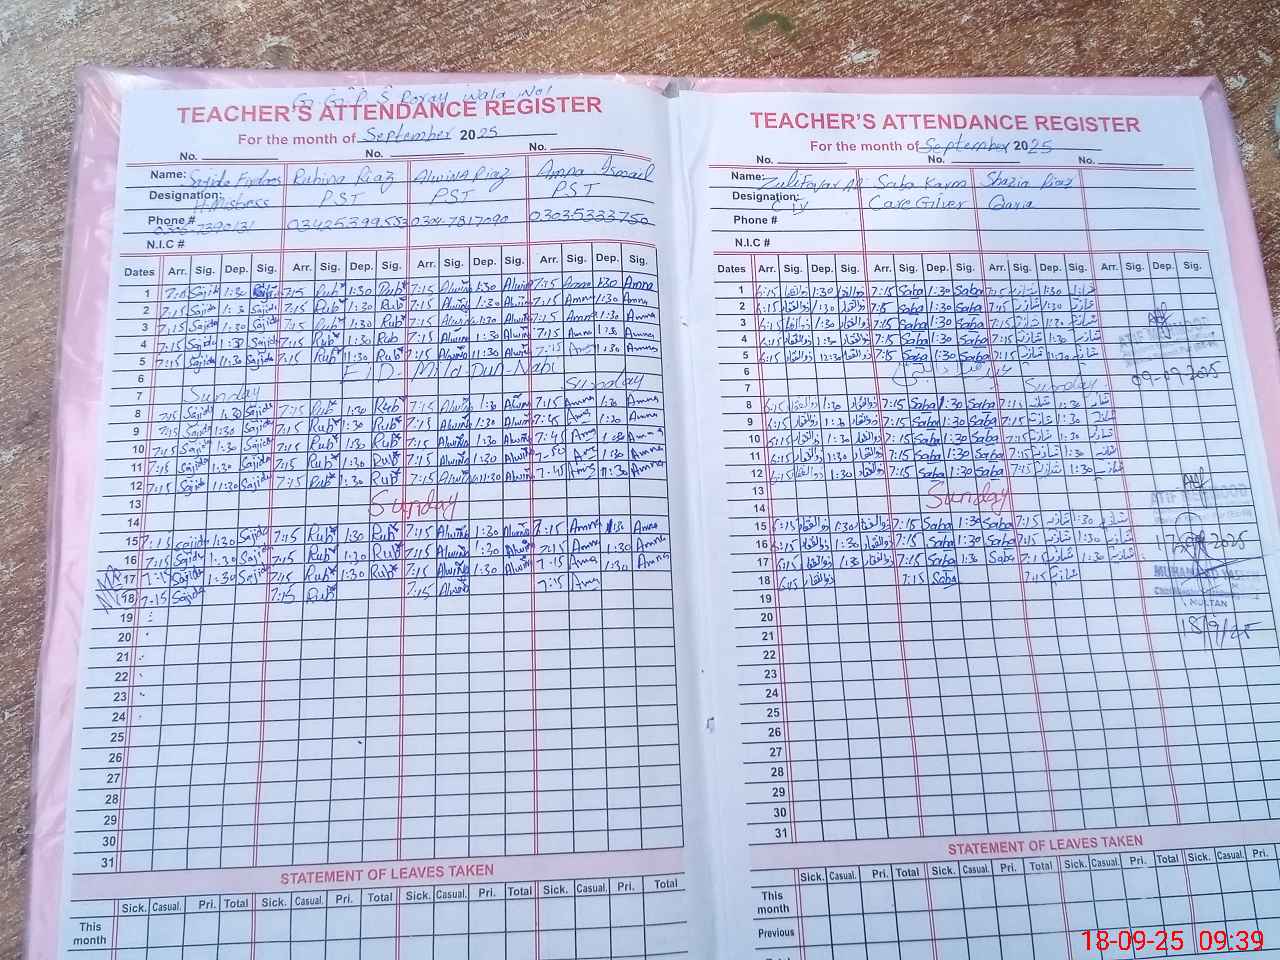 G.G.P.S Poray wala No1
TEACHER'S ATTENDANCE REGISTER
For the month of September 2025
No. No. No.
Name: Sajida Firdous Rubina Riaz Alwina Riaz Amna Ismail
Designation: H.Mistress PST PST PST
Phone # 0304-7817090 03035333750
N.I.C #
Dates Arr. Sig. Dep. Sig. Arr. Sig. Dep. Sig. Arr. Sig. Dep. Sig. Arr. Sig. Dep. Sig.
1 Sajida 1:30 7:15 Rub 1:30 Rub 7:15 Alwina 1:30 Alwina 7:15 Amna 1:30 Amna
2 7:15 Sajida 1:30 Sajida 7:15 Rub 1:30 Rub 7:15 Alwina 1:30 Alwina 7:15 Amna 1:30 Amna
3 7:15 Sajida 1:30 Sajida 7:15 Rub 1:30 Rub 7:15 Alwina 1:30 Alwina 7:15 Amna 1:30 Amna
4 7:15 Sajida 1:30 Sajida 7:15 Rub 1:30 Rub 7:15 Alwina 1:30 Alwina 7:15 Amna 1:30 Amna
5 7:15 Sajida 11:30 Sajida 7:15 Rub 11:30 Rub 7:15 Alwina 11:30 Alwina 7:15 Amna 11:30 Amna
6 EID-Mild-Dun-Nabi
7 Sunday Sunday
8 7:15 Sajida 1:30 Sajida 7:15 Rub 1:30 Rub 7:15 Alwina 1:30 Alwina 7:15 Amna 1:30 Amna
9 7:15 Sajida 1:30 Sajida 7:15 Rub 1:30 Rub 7:15 Alwina 1:30 Alwina 7:45 Amna 1:30 Amna
10 7:15 Sajida 1:30 Sajida 7:15 Rub 1:30 Rub 7:15 Alwina 1:30 Alwina 7:45 Amna 1:30 Amna
11 7:15 Sajida 1:30 Sajida 7:15 Rub 1:30 Rub 7:15 Alwina 1:30 Alwina Amna 1:30 Amna
12 7:15 Sajida 11:30 Sajida 7:15 Rub 1:30 Rub 7:15 Alwina 11:30 Alwina 7:45 Amna 11:30 Amna
13
Sunday
14
15 7:15 Sajida 1:30 Sajida 7:15 Rub 1:30 Rub 7:15 Alwina 1:30 Alwina 7:15 Amna 1:30 Amna
16 7:15 Sajida 1:30 Sajida 7:15 Rub 1:30 Rub 7:15 Alwina 1:30 Alwina 7:15 Amna 1:30 Amna
17 7:15 Sajida 1:30 Sajida 7:15 Rub 1:30 Rub 7:15 Alwina 1:30 Alwina 7:15 Amna 1:30 Amna
18 7:15 Sajida 7:15 Rub 7:15 Alwina 7:15 Amna
19
20
21
22
23
24
25
26
27
28
29
30
31
STATEMENT OF LEAVES TAKEN
Sick. Casual. Pri. Total Sick. Casual. Pri. Total Sick. Casual. Pri. Total Sick. Casual. Pri. Total
This month
TEACHER'S ATTENDANCE REGISTER
For the month of September 2025
No. No. No.
Name: Zulifqar Ali Saba Karm Shazia Riaz
Designation: Care Giver
Phone #
N.I.C #
Dates Arr. Sig. Dep. Sig. Arr. Sig. Dep. Sig. Arr. Sig. Dep. Sig. Arr. Sig. Dep. Sig.
1 6:15 ذوالفقار 1:30 ذوالفقار 7:15 Saba 1:30 Saba 7:15 شازیہ 1:30 شازیہ
2 6:15 ذوالفقار 1:30 ذوالفقار 7:15 Saba 1:30 Saba 7:15 شازیہ 1:30 شازیہ
3 6:15 ذوالفقار 1:30 ذوالفقار 7:15 Saba 1:30 Saba 7:15 شازیہ 1:30 شازیہ
4 6:15 ذوالفقار 1:30 ذوالفقار 7:15 Saba 1:30 Saba 7:15 شازیہ 1:30 شازیہ
5 6:15 ذوالفقار 12:30 ذوالفقار 7:15 Saba 11:30 Saba 7:15 شازیہ 11:30 شازیہ
6 09-09-2025
7 Sunday
8 6:15 ذوالفقار 1:30 ذوالفقار 7:15 Saba 1:30 Saba 7:15 شازیہ 1:30 شازیہ
9 6:15 ذوالفقار 1:30 ذوالفقار 7:15 Saba 1:30 Saba 7:15 شازیہ 1:30 شازیہ
10 6:15 ذوالفقار 1:30 ذوالفقار 7:15 Saba 1:30 Saba 7:15 شازیہ 1:30 شازیہ
11 6:15 ذوالفقار 1:30 ذوالفقار 7:15 Saba 1:30 Saba 7:15 شازیہ 1:30 شازیہ
12 6:15 ذوالفقار 1:30 ذوالفقار 7:15 Saba 1:30 Saba 7:15 شازیہ 1:30 شازیہ
13 Sunday
14
15 6:15 ذوالفقار 1:30 ذوالفقار 7:15 Saba 1:30 Saba 7:15 شازیہ 1:30 شازیہ
16 6:15 ذوالفقار 1:30 ذوالفقار 7:15 Saba 1:30 Saba 7:15 شازیہ 1:30 شازیہ
17 6:15 ذوالفقار 1:30 ذوالفقار 7:15 Saba 1:30 Saba 7:15 شازیہ 1:30 شازیہ
18 6:15 ذوالفقار 7:15 Saba 7:15 شازیہ
19 MULTAN
20 18/9/25
21
22
23
24
25
26
27
28
29
30
31
STATEMENT OF LEAVES TAKEN
Sick. Casual. Pri. Total Sick. Casual. Pri. Total Sick. Casual. Pri. Total Sick. Casual. Pri.
This month
Previous
18-09-25 09:39